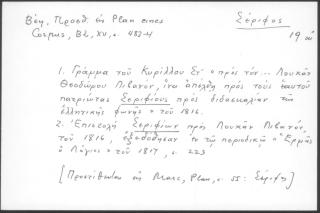 Βέη, Προσθ. εἰς Plan eines
Corpus, BZ, XV, σ. 483-4
Σέριφος
19 αἰ
1. Γράμμα τοῦ Κυρίλλου Στ' "πρὸς τὸν... Λουκᾶν
Θεοδώρου Πίβατον, ἵνα ἀπέλθῃ πρὸς τοὺς ἑαυτοῦ
πατριώτας Σεριφίους πρὸς διδασκαλίαν τῆς
ἑλληνικῆς φωνῆς" τοῦ 1816.
2. Ἐπιστολὴ Σεριφίων πρὸς Λουκᾶν Πίβατον,
τοῦ 1816, ἐξεδόθησαν ἐν τῷ περιοδικῷ "Ἑρμῆς
ὁ Λόγιος" τοῦ 1817, σ. 223
[Προστίθενται εἰς Marc, Plan, σ. 55: Σέριφος]